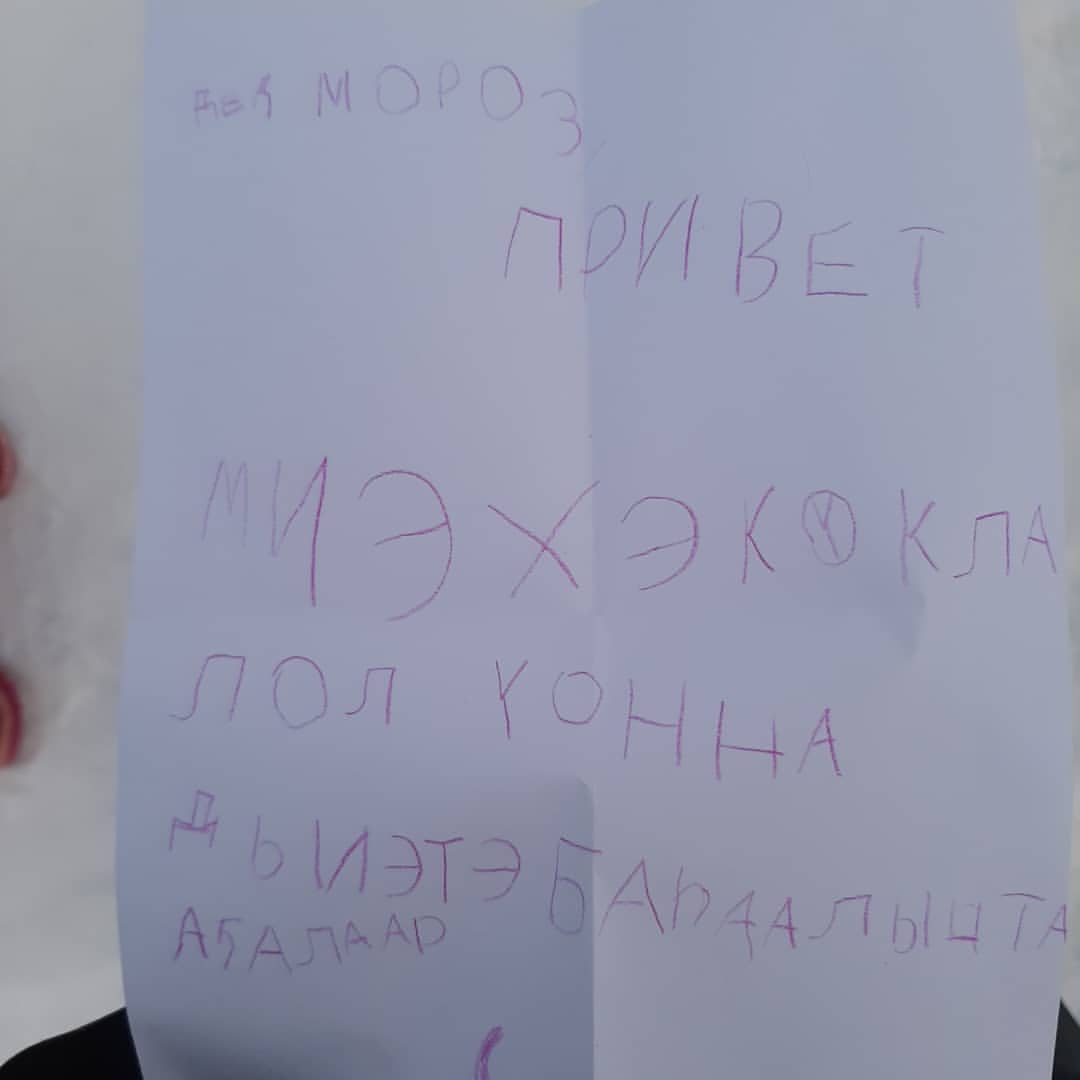 ДЕД МОРОЗ,
ПРИВЕТ
МИЭХЭ КУКЛА
ЛОЛ УОННА
ДЬИЭТЭ БАҺААЛЫЦТА
АҔАЛААР